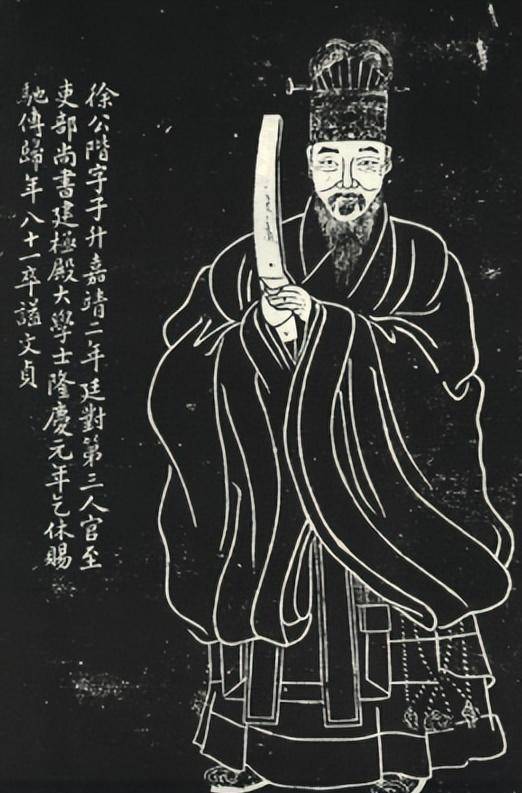 徐公階字子升嘉靖二年廷對第三人官至
吏部尚書建極殿大學士隆慶元年乞休賜
馳傳歸年八十一卒諡文貞